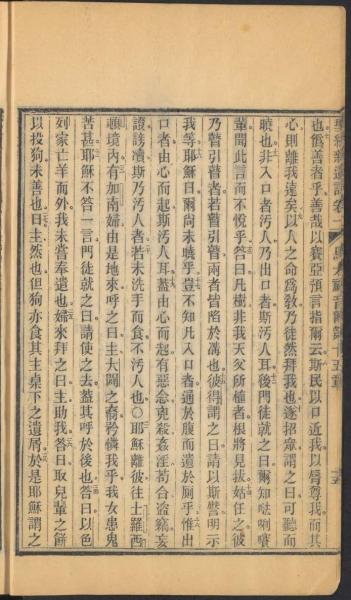 也僞善者乎善哉以賽亞預言指爾云斯民以口近我以唇尊我而其
心則離我遠矣以人之命爲敎乃徒然拜我也遂招衆謂之曰可聽而
曉也非入口者汚人乃出口者斯汚人耳後門徒就之曰爾知𠵽唎㘔
輩聞此言而不悅乎答曰凡樹非我天父所植者根將見拔姑任之彼
乃瞽引瞽者若瞽引瞽兩者皆陷於溝也彼得謂之曰請以斯譬明示
我等耶穌曰爾尚未曉乎豈不知凡入口者過於腹而遺於厠乎惟出
口者由心而起斯汚人耳蓋由心而起有惡念兇殺姦淫苟合盜竊妄
證謗讟斯乃汚人者若未洗手而食不汚人也〇耶穌離彼往士羅西
頓境內有加南婦由是地來呼之曰主大闢之裔矜憐我乎我女患鬼
苦甚耶穌不答一言門徒就之曰請使之去蓋其呼於後也答曰以色
列家亡羊而外我未嘗奉遣也婦來拜之曰主助我答曰取兒輩之餅
以投狗未善也曰主然也但狗亦食其主桌下之遺屑於是耶穌謂之